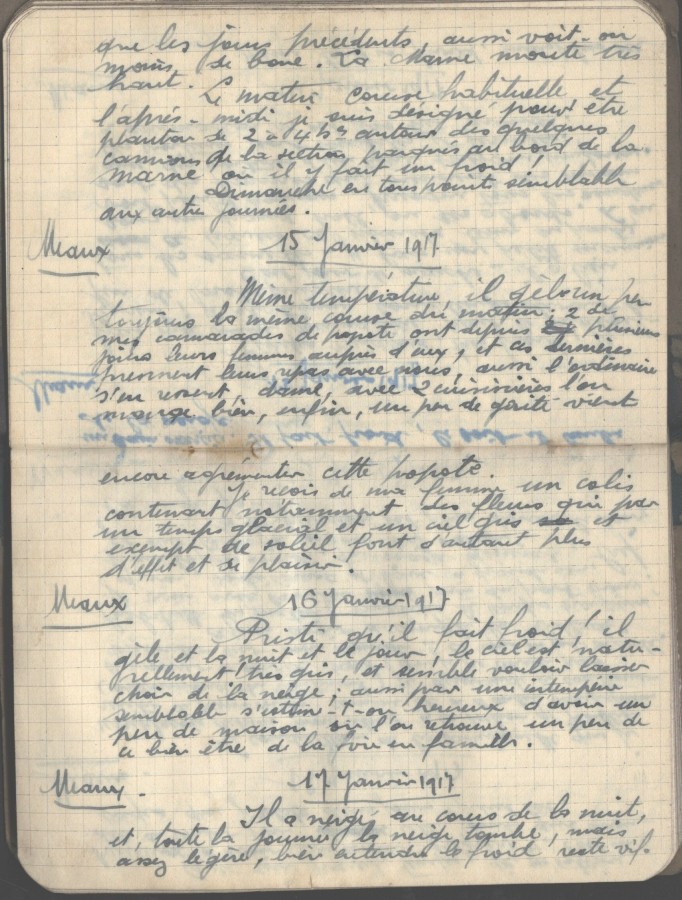 que les jours précédents, aussi voit-on
moins de boue. La Marne monte très
haut.
Le matin course habituelle et
l'après-midi je suis désigné pour être
planton de 2 à 4 hrs autour des quelques
camions de la section parqués au bord de la
Marne où il y fait un froid!
Dimanche en tous points semblable
aux autres journées.
Meaux 15 Janvier 1917
Même température, il gèle un peu
toujours la même course du matin; 2 de
mes camarades de popote ont depuis plusieurs
jours leurs femmes auprès d'eux, et ces dernières
prennent leurs repas avec nous, aussi l'ordinaire
s'en ressent dame, avec 2 cuisinières l'on
mange bien, enfin, un peu de gaité vient
encore agrémenter cette popote.
Je reçois de ma femme un colis
contenant notamment des fleurs qui par
un temps glacial et un ciel gris et
exempt de soleil font d'autant plus
d'effet et de plaisir.
Meaux 16 Janvier 1917
Pristi qu'il fait froid! il
gèle et la nuit et le jour, le ciel est natu-
rellement très gris, et semble vouloir laisser
choir de la neige; aussi par une intempérie
semblable s'estime-t-on heureux d'avoir un
peu de maison où l'on retrouve un peu de
ce bien être de la vie en famille.
Meaux - 17 Janvier 1917
Il a neigé au cours de la nuit,
et, toute la journée la neige tombe, mais
assez légère, bien entendu le froid reste vif.